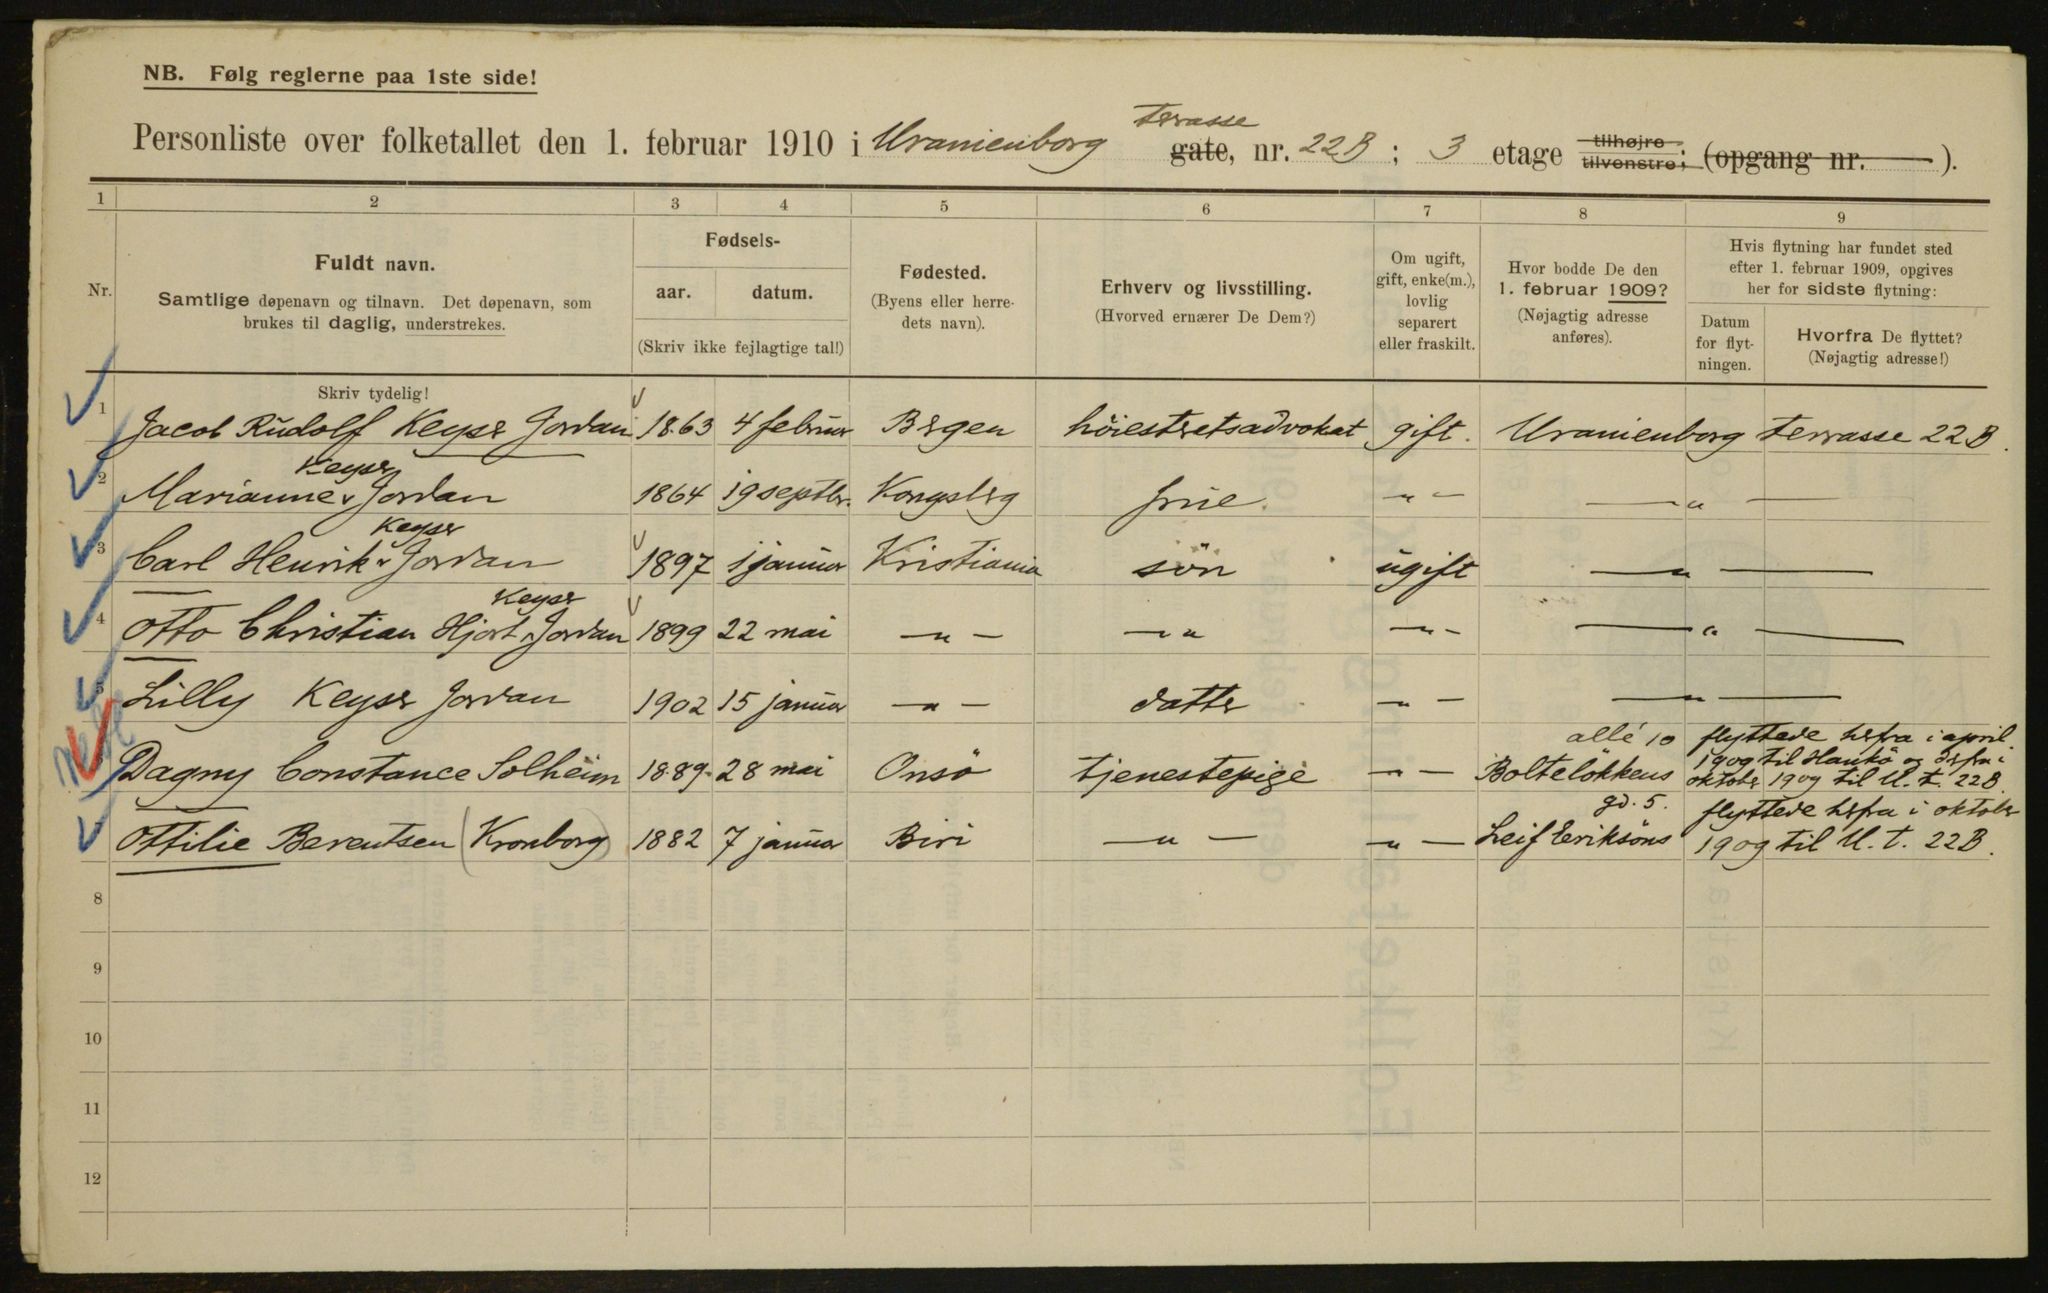 NB. Følg reglerne paa 1ste side!
Personliste over folketallet den 1. februar 1910 i Uranienborg terrasse gate, nr. 22B; 3 etage tilhøjre tilvenstre; (opgang nr. ).
1 2 3 4 5 6 7 8 9
Nr.
Fuldt navn.
Samtlige døpenavn og tilnavn. Det døpenavn, som
brukes til daglig, understrekes.
Skriv tydelig!
Fødsels-
aar. datum.
(Skriv ikke fejlagtige tal!)
Fødested.
(Byens eller herre-
dets navn).
Erhverv og livsstilling.
(Hvorved ernærer De Dem?)
Om ugift,
gift, enke(m.),
lovlig
separert
eller fraskilt.
Hvor bodde De den
1. februar 1909?
(Nøjagtig adresse
anføres).
Hvis flytning har fundet sted
efter 1. februar 1909, opgives
her for sidste flytning:
Datum
for flyt-
ningen.
Hvorfra De flyttet?
(Nøjagtig adresse!)
1 Jacob Rudolf Keyser Jordan 1863 4 februar Bergen höiesteretsadvokat gift. Uranienborg terrasse 22B.
2 Marianne Keyser Jordan 1864 19 septbr. Kongsberg frue " — — " —
3 Carl Henrik Keyser Jordan 1897 1 januar Kristiania sön ugift — " —
4 Otto Christian Hjort Keyser Jordan 1899 22 mai — " — — " — " — — " —
5 Lilly Keyser Jordan 1902 15 januar — " — datter — " — — " —
Dagny Constance Solheim 1889 28 mai Onsö tjenestepige — " — Bolteløkkens allé 10 flyttede herfra i april
1909 til Hankö og derfra i
oktober 1909 til U. t. 22B.
Ottilie Berentsen (Kronborg) 1882 7 januar Biri — " — — " — Leif Eriksöns gd. 5. flyttede herfra i oktober
1909 til U. t. 22B.
8
9
10
11
12